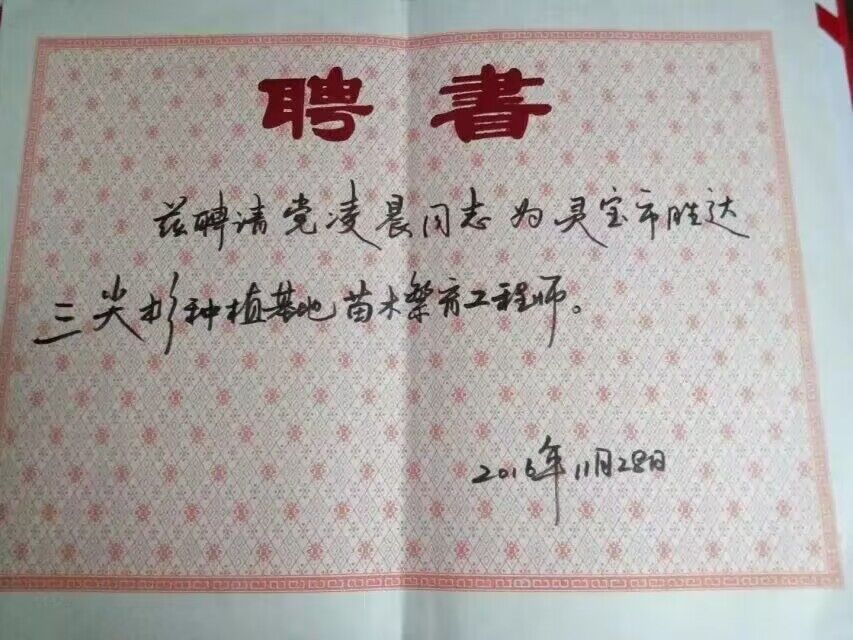 聘书
兹聘请党凌晨同志为灵宝市胜达
三尖杉种植基地苗木繁育工程师。
2016年11月28日